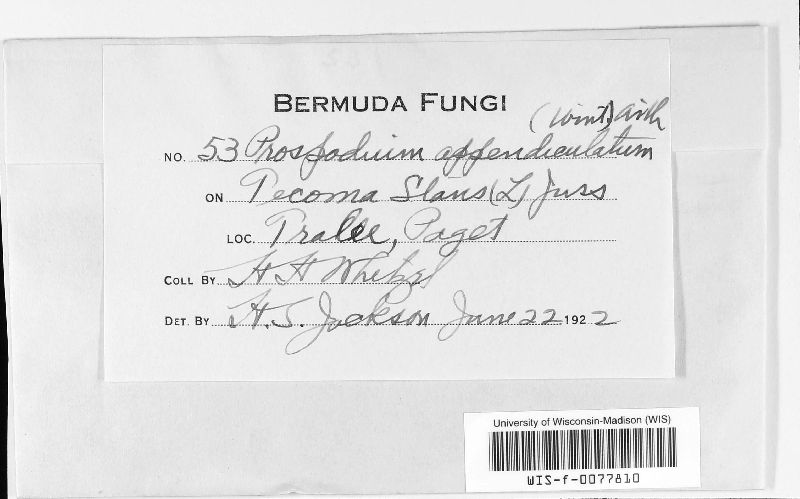 BERMUDA FUNGI
(Wint) Arth
NO. 53 Prospodium appendiculatum
ON Tecoma Stans (L) Juss
LOC. Tralee, Paget
COLL BY H H Whetzel
DET. BY H. S. Jackson June 22 1922
University of Wisconsin-Madison (WIS)
WIS-f-0077810